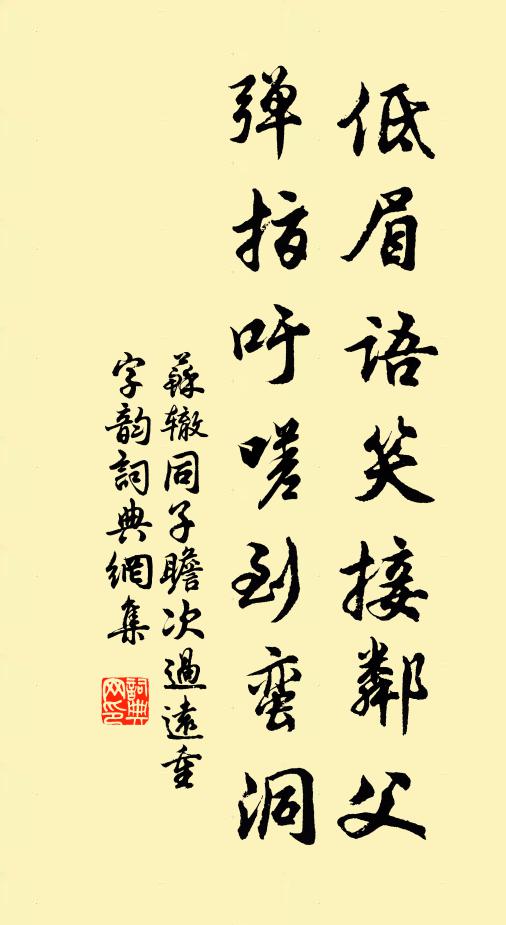 低眉语笑接鄰父
弹指吁嗟到蛮洞
蘇辙同子瞻次過遠重
字韵詞典網集
詞典
网印